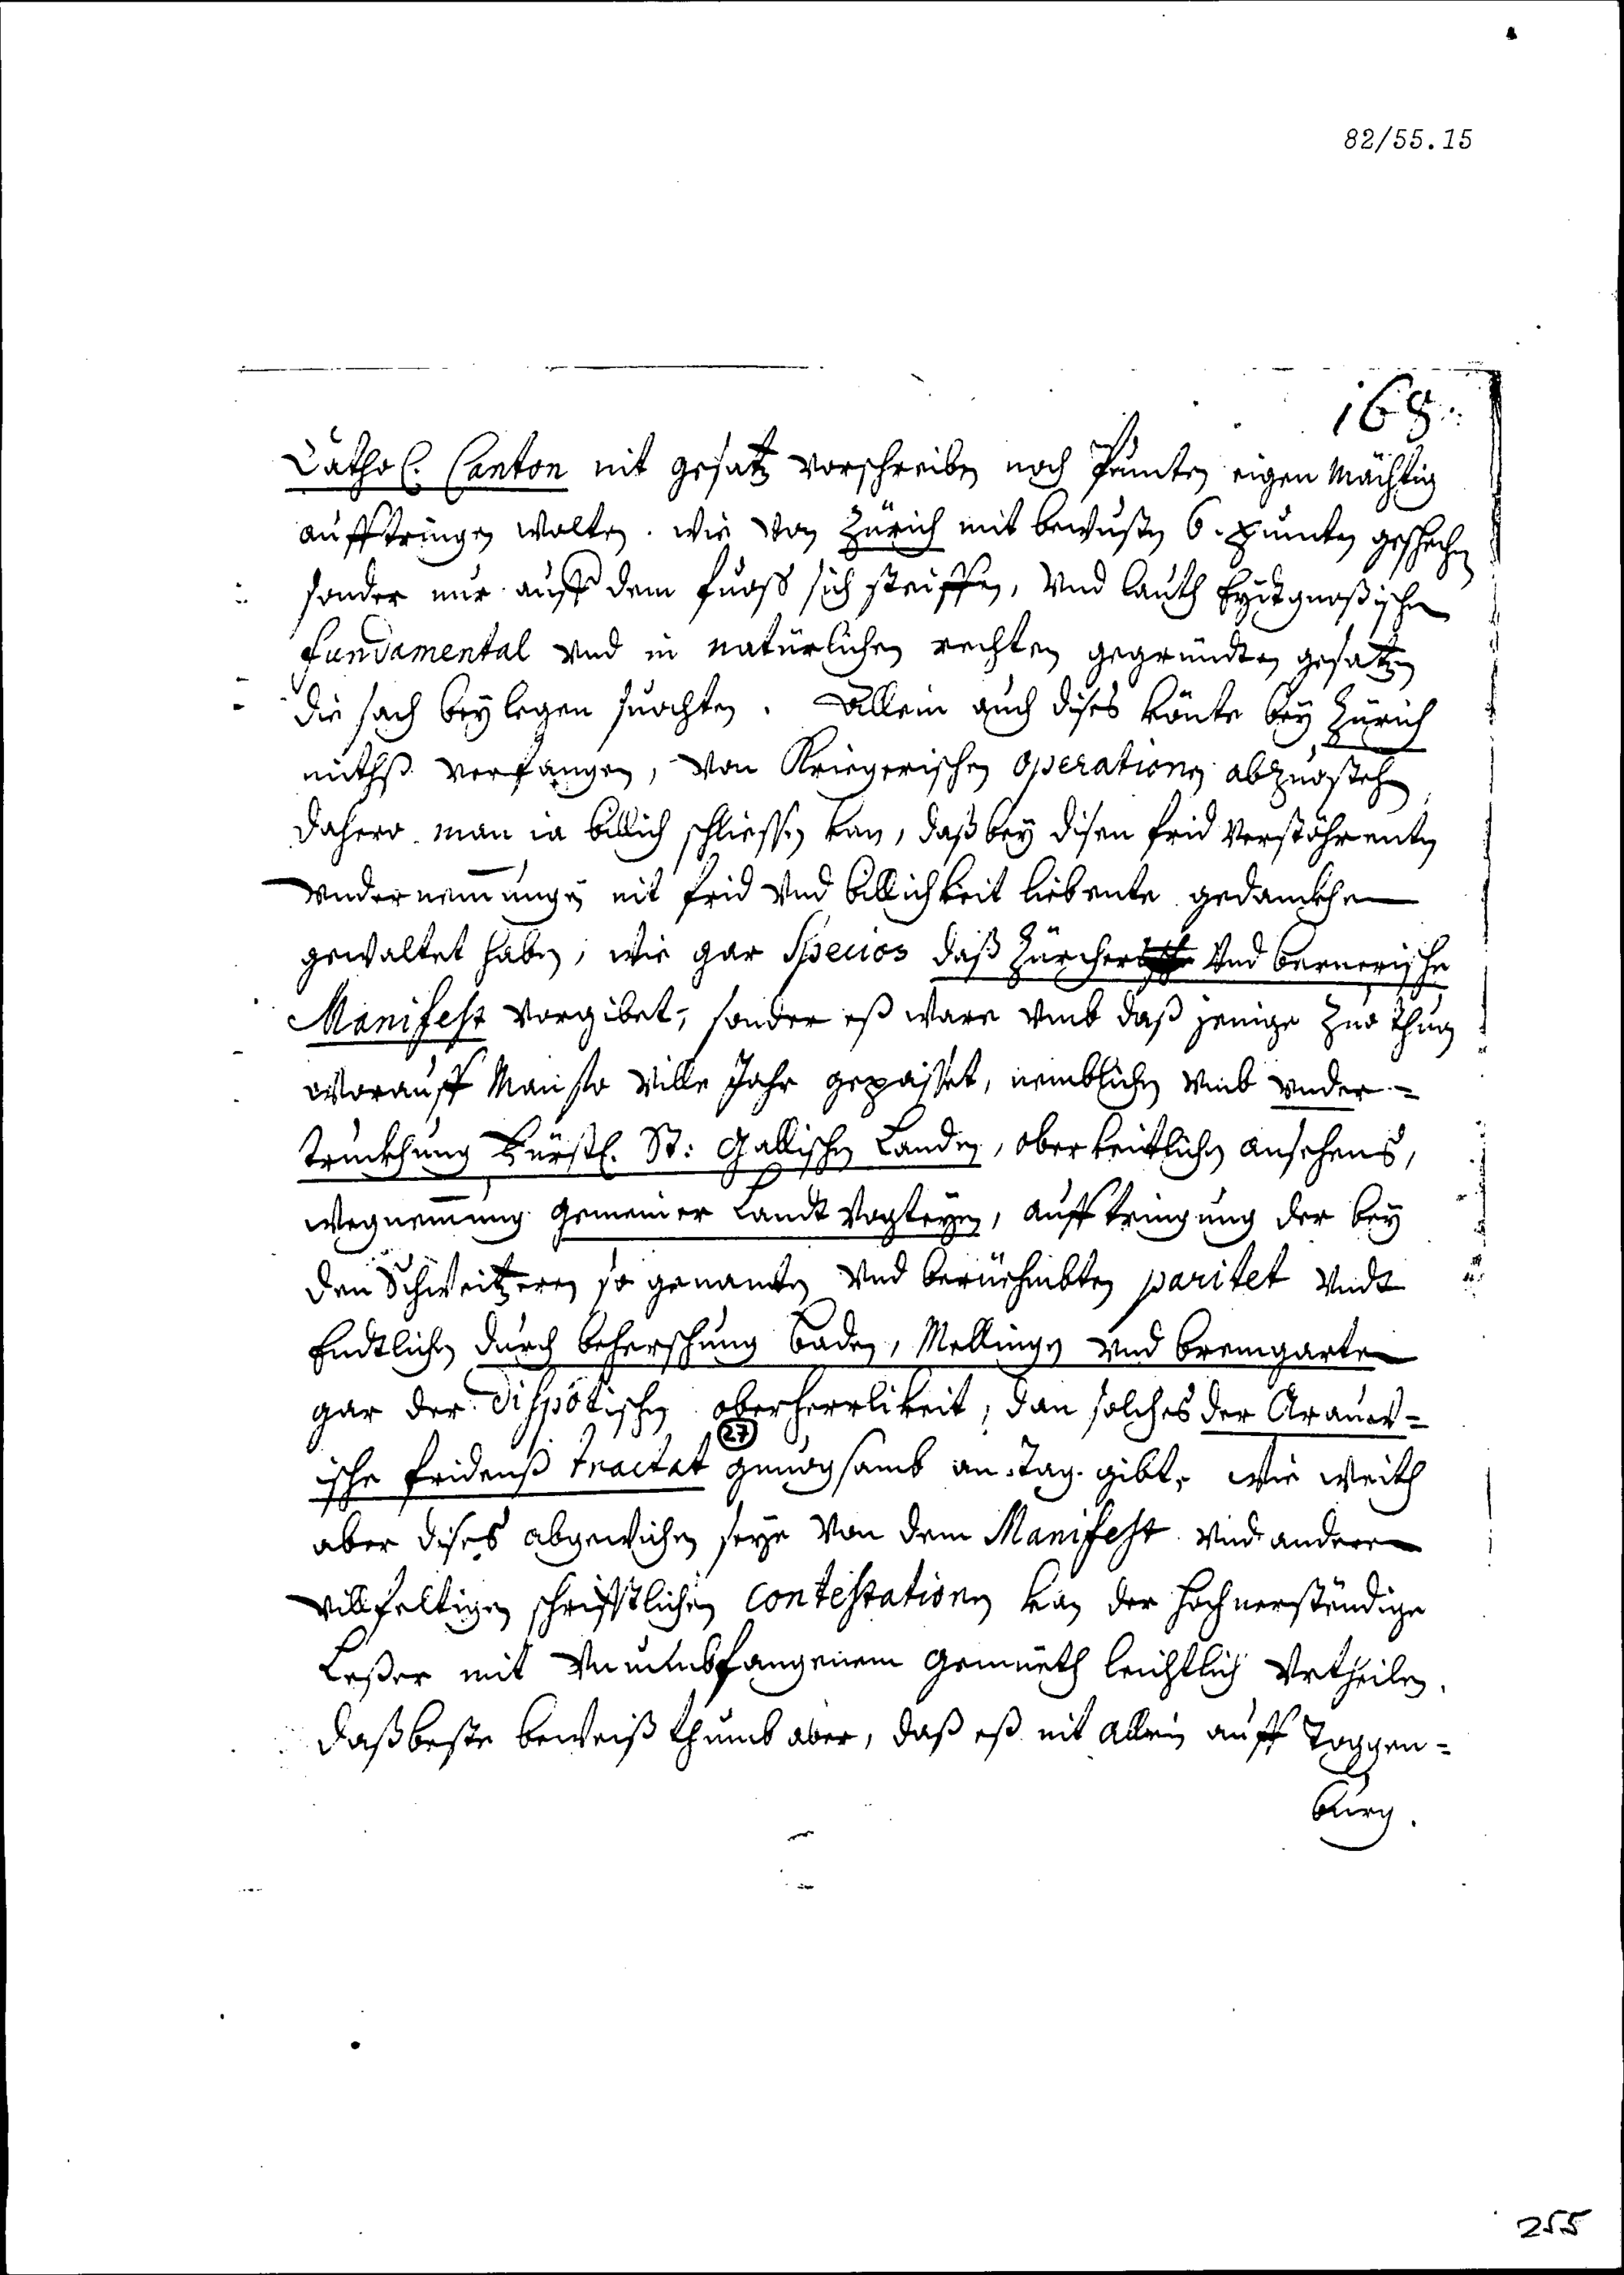 82/55.15
168.
Cathol. Canton nit gesatz vorschreiben noch Puncten eigen Mächtig
aufftringen wolten. wie von Zürich mit bewusten 6. puncten geschechen
sonder nur auff dem fuoss sich steiffen, Vnd lauth Eydtgnoßischen
fundamental vnd in natürlichen rechten gegründten gesatzen
die sach beylegen suochten. Allein auch dises könte bey Zürich
nichtß verfangen, von Kriegerischen operationen abzuostehen
dahero man ia billich schliessen kan, daß bey disen frid verstöhrenten
vndernemungen nit frid vnd billichkeit liebente gedanckhen
gewaltet haben, wie gar Specios daß Zürcher Vnd bernerische
Manifest vorgibet, sonder eß ware vmb daß jenige Zuo thuon
worauff Man so ville Jahr gepasset, nemblichen vmb vnder=
truckhung Fürstl. St: Gallischen Landen, oberkeitlichen ansehens,
wegnemung gemeiner Landt vogteyen, aufftringung der bey
den Schweitzeren so genanten vnd berüehmbten paritet vndt
Endtlichen durch beherschung baden, Mellingen vnd bremgarten
gar der Dispotischen oberherrlikeit, dan solches der Arauw=
27
ische fridenß tractat genuogsamb an Tag gibt, wie weith
aber dises abgewichen seye von dem Manifest vnd anderen
villfeltigen schrifftlichen contestationen kan der hochverständige
Leßer mit vnumbfangenem gemüeth leichtlich Vrtheilen.
daß beste beweißthumb aber, daß eß nit allein auff Toggen=
burg.
255